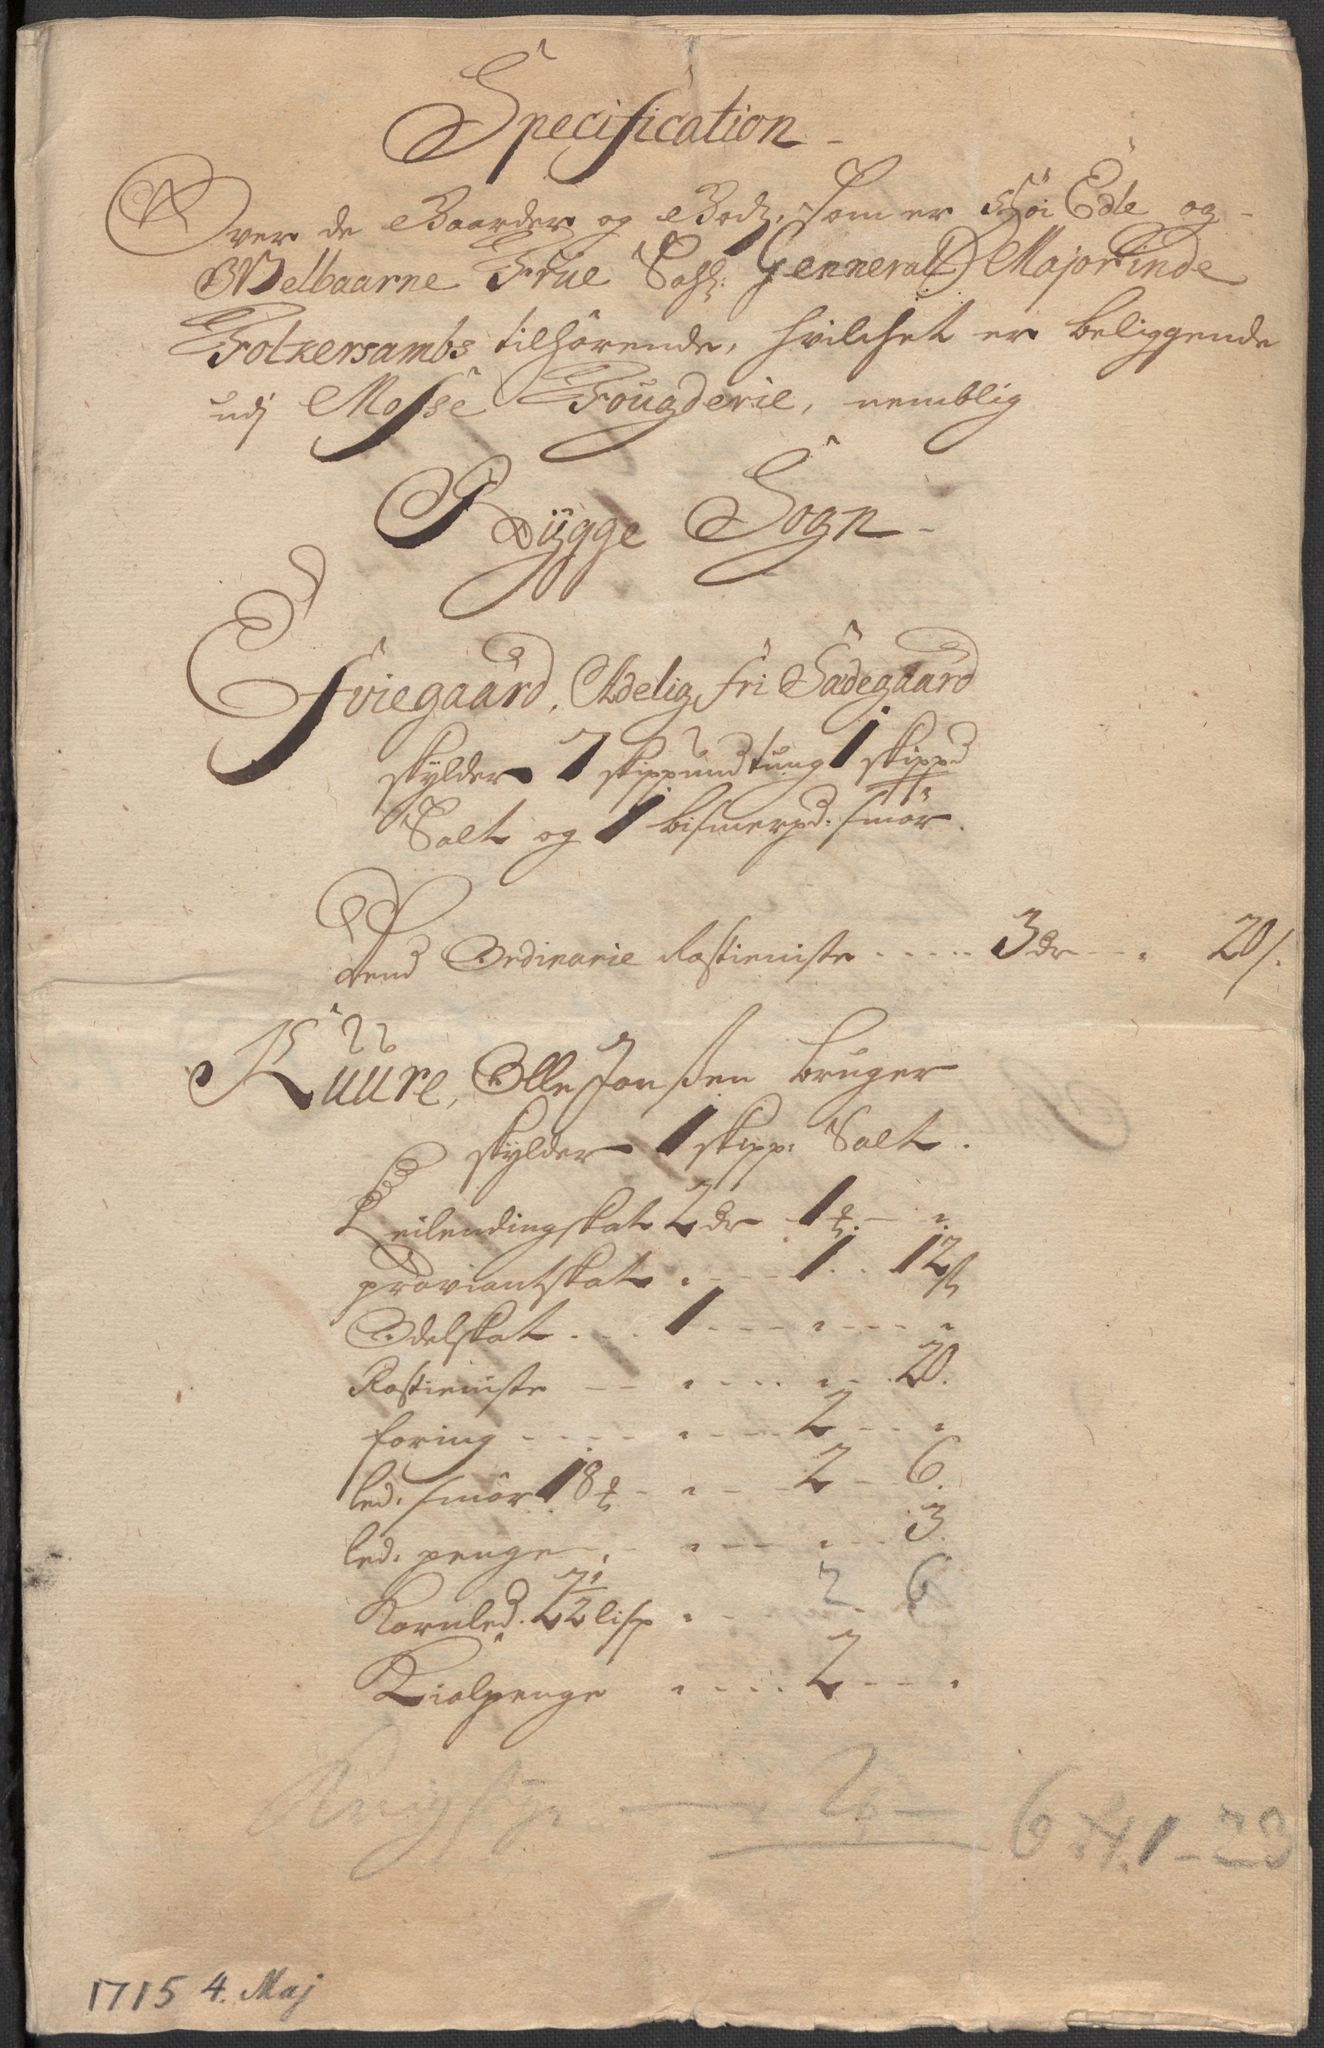 Specification
Over de Gaarder og Godz, som er Höi Edle og
Welbaarne Frue Sahl: General Majorinde
Folkersambs tilhörende, hvilchet er beliggende
udj Mosse Fougderie, nemblig
Rÿgge Sogn
Eviegaard, Adelig fri Sædegaard
skylder 7 skippund tung 1 skippd
Salt og 1 bismerpd: smör.
Ordinarie Rostieniste 3 dr 20 s.
Kuure, Olle Jonsen bruger
skylder 1 skipp: Salt.
Leilendingskat 2 dr 1
proviantskat 1 12 s
Odelskat 1
Rostieniste 20.
foring 2
led. smör 18 2 6.
led. penge 3.
Kornled. 2 1/2 lisp 2 6
Kiolpenge 2
2 6 1 - 23
1715 4. Maj